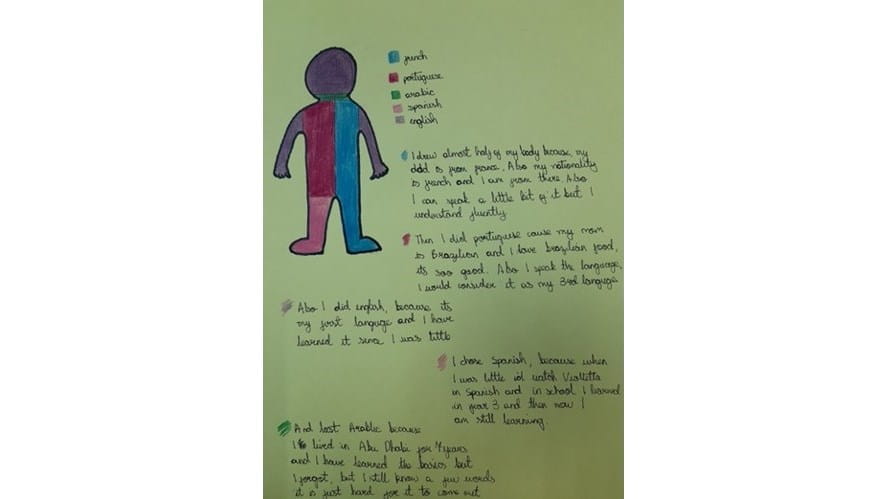 french
portuguese
arabic
spanish
english
I drew almost half of my body because my
dad is from france. Also my nationality
is french and I am from there. Also
I can speak a little bit of it but I
understand fluently
Then I did portuguese cause my mom
is Brazilian and I love brazilian food,
its soo good. Also I speak the language,
I would consider it as my 3rd languge
Also I did english, because its
my first languge and I have
learned it since I was little
I chose Spanish, because when
I was little id watch Violetta
in Spanish and in school I learned
in year 3 and then now I
am still learning.
And last Arabic because
I lived in Abu Dhabi for 7 years
and I have learned the basics but
I forgot, but I still know a few words
it is just hard for it to come out